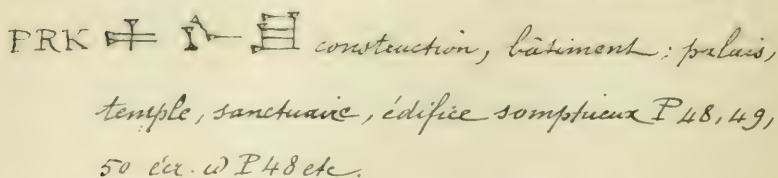 PRK construction, bâtiment : palais,
temple, sanctuaire, édifice somptueux P 48, 49,
50 écr. ω P 48 etc.